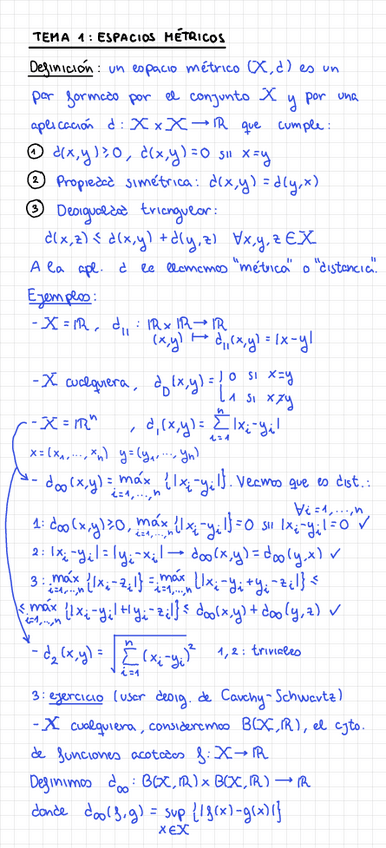 TEMA 1: ESPACIOS MÉTRICOS
Definición: un espacio métrico (X,d) es un
par formado por el conjunto X y por una
aplicación d: X x X → ℝ que cumple:
① d(x,y) ≥ 0, d(x,y) = 0 sii x=y
② Propiedad simétrica: d(x,y) = d(y,x)
③ Desigualdad triangular:
d(x,z) ≤ d(x,y) + d(y,z) ∀x,y,z ∈ X
A la apl. d le llamamos "métrica" o "distancia".
Ejemplos:
- X = ℝ, d_{||}: ℝ x ℝ → ℝ
(x,y) ↦ d_{||}(x,y) = |x-y|
- X cualquiera, d_D(x,y) = { 0 si x=y
1 si x≠y
- X = ℝⁿ, d₁(x,y) = ∑_{i=1}^{n} |xᵢ-yᵢ|
x=(x₁,...,xₙ) y=(y₁,...,yₙ)
- d∞(x,y) = máx_{i=1,...,n} {|xᵢ-yᵢ|}. Veamos que es dist.:
1: d∞(x,y) ≥ 0, máx_{i=1,...,n} {|xᵢ-yᵢ|} = 0 sii |xᵢ-yᵢ| = 0 ∀i=1,...,n ✓
2: |xᵢ-yᵢ| = |yᵢ-xᵢ| → d∞(x,y) = d∞(y,x) ✓
3: máx_{i=1,...,n} {|xᵢ-zᵢ|} = máx_{i=1,...,n} {|xᵢ-yᵢ+yᵢ-zᵢ|} ≤
≤ máx_{i=1,...,n} {|xᵢ-yᵢ|+|yᵢ-zᵢ|} ≤ d∞(x,y) + d∞(y,z) ✓
- d₂(x,y) = √(∑_{i=1}^{n} (xᵢ-yᵢ)²) 1,2: triviales
3: ejercicio (usar desig. de Cauchy-Schwartz)
- X cualquiera, consideremos B(X,ℝ), el cjto.
de funciones acotadas f: X → ℝ
Definimos d∞: B(X,ℝ) x B(X,ℝ) → ℝ
donde d∞(f,g) = sup_{x∈X} {|f(x)-g(x)|}